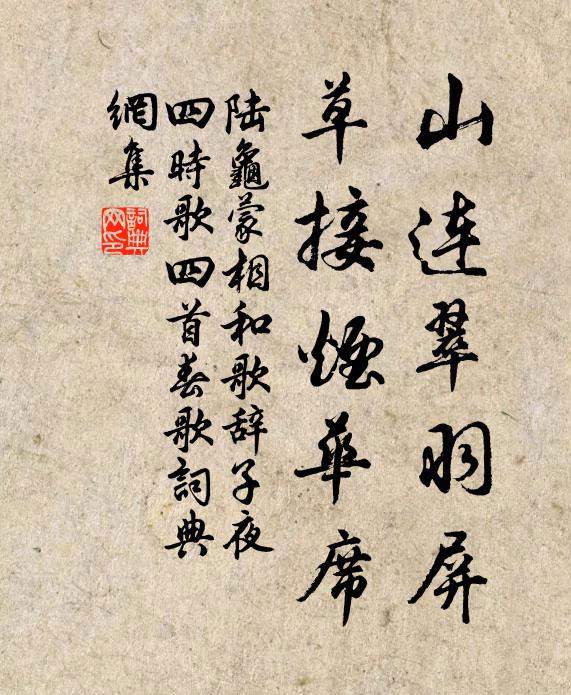 山连翠羽屏
草接煙華席
陆龜蒙相和歌辞子夜
四時歌四首春歌詞典
網集
詞典
网印